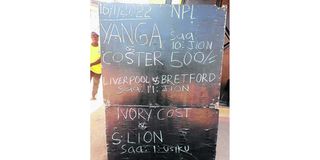 16/1/2022 NPL
YANGA Saa
10:JION
COSTER 500/=
LIVERPOOL vs BRETFORD
Saa: 11: JION
IVORY COST
vs
S.LION
Saa: 1: USIKU